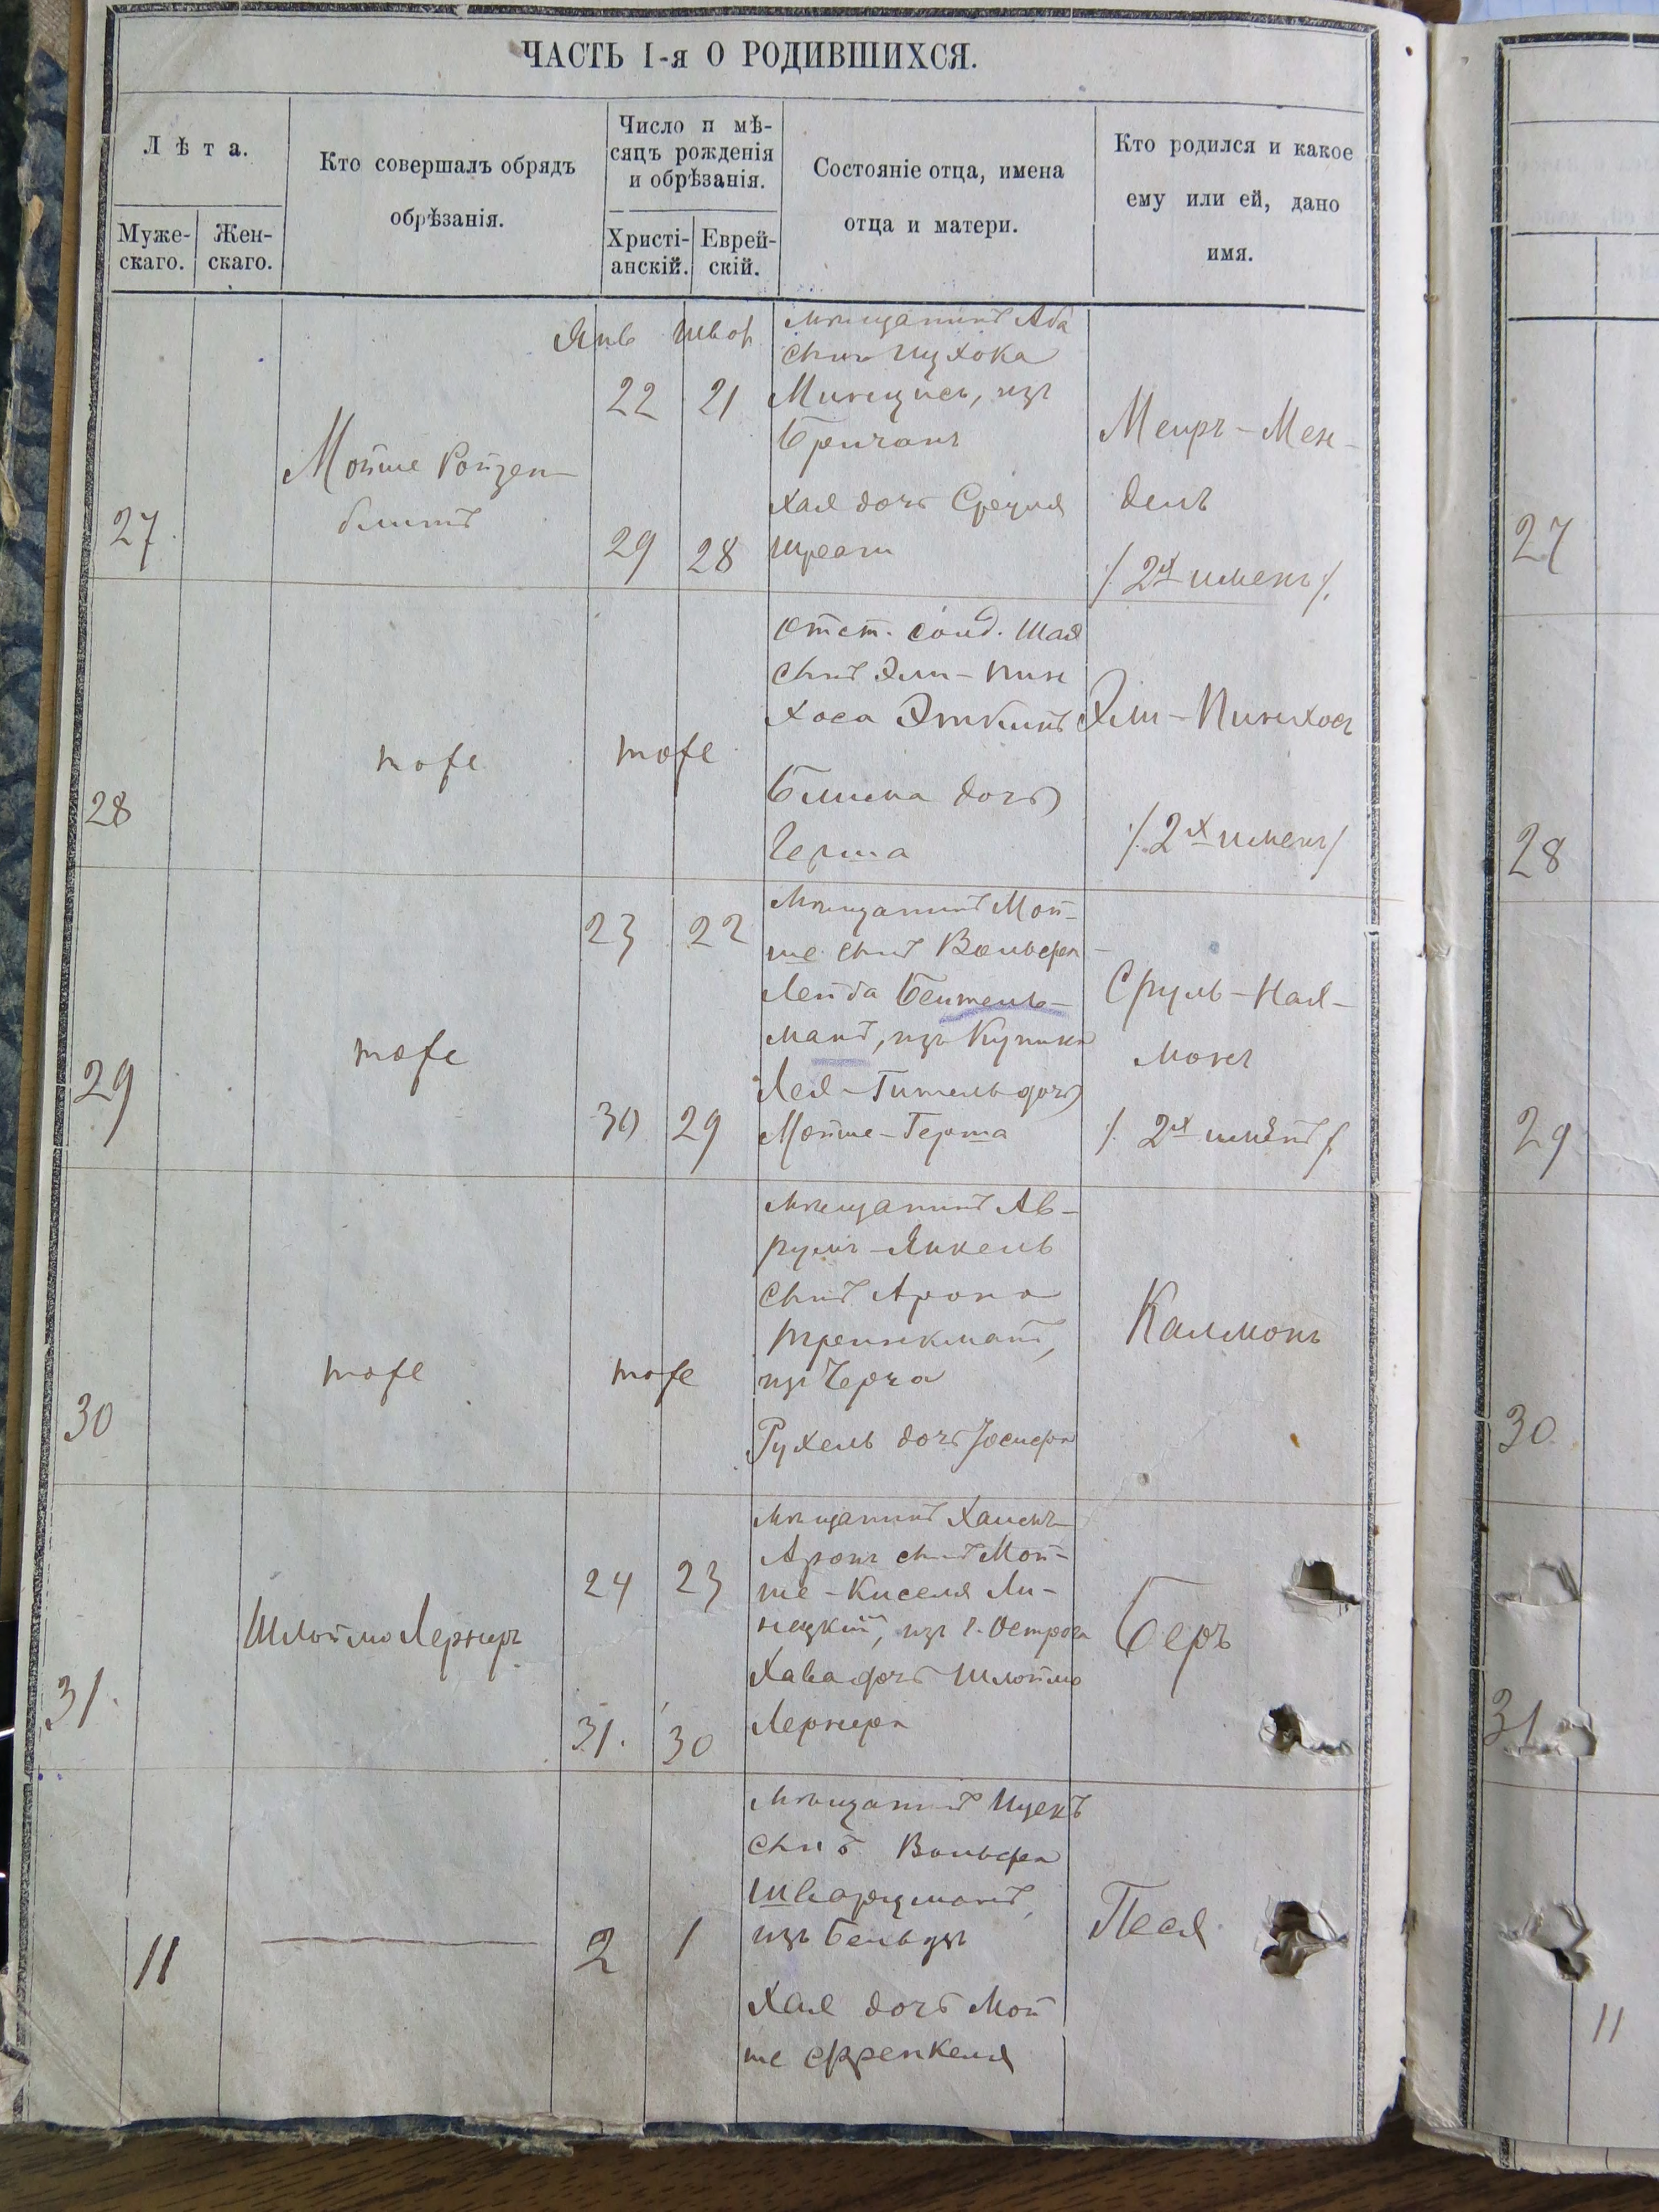 ЧАСТЬ I-я О РОДИВШИХСЯ.
Лѣта.
Муже-
скаго.
Жен-
скаго.
Кто совершалъ обрядъ
обрѣзанія.
Число и мѣ-
сяцъ рожденія
и обрѣзанія.
Христі-
анскій.
Еврей-
скій.
Состояніе отца, имена
отца и матери.
Кто родился и какое
ему или ей, дано
имя.
27
Мойше Ройзен-
блитъ
Янв
22
29
Швот
21
28
мѣщанинъ Аба
сынъ Ицхока
из
Бричанъ
Хая дочь Сруля
Меиръ-Мен-
дель
/. 2х именъ /.
27
28
тоже
тоже
отст. солд. Шая
сынъ Эли-Пин
хоса
Блима дочь
Герша
Эли-Пинхосъ
/. 2х именъ /
28
29
тоже
23
30
22
29
мѣщанинъ Мой-
ше сынъ Вольфа
Лейба Бейтель-
манъ, изъ Купина
Лея-Гитель дочь
Мойше-Герша
Сруль-Нах-
монъ
/. 2х имѣнъ /.
29
30
тоже
тоже
мѣщанинъ Ав-
румъ-Янкель
сынъ Арона
из
Рухель дочь Іосифа
Калмонъ
30
31.
Шлоймо Лернеръ
24
31.
23
30
мѣщанинъ Хаимъ-
Аронъ сынъ Мой-
ше-Киселя Ли-
нецкій, изъ г. Острога
Хава дочь Шлоймо
Лернера
Беръ
31
11
2
1
мѣщанинъ Ицекъ
сынъ Вольфа
Шварцманъ,
изъ Бельцъ
Хая дочь Мой
ше Френкеля
Песя
11